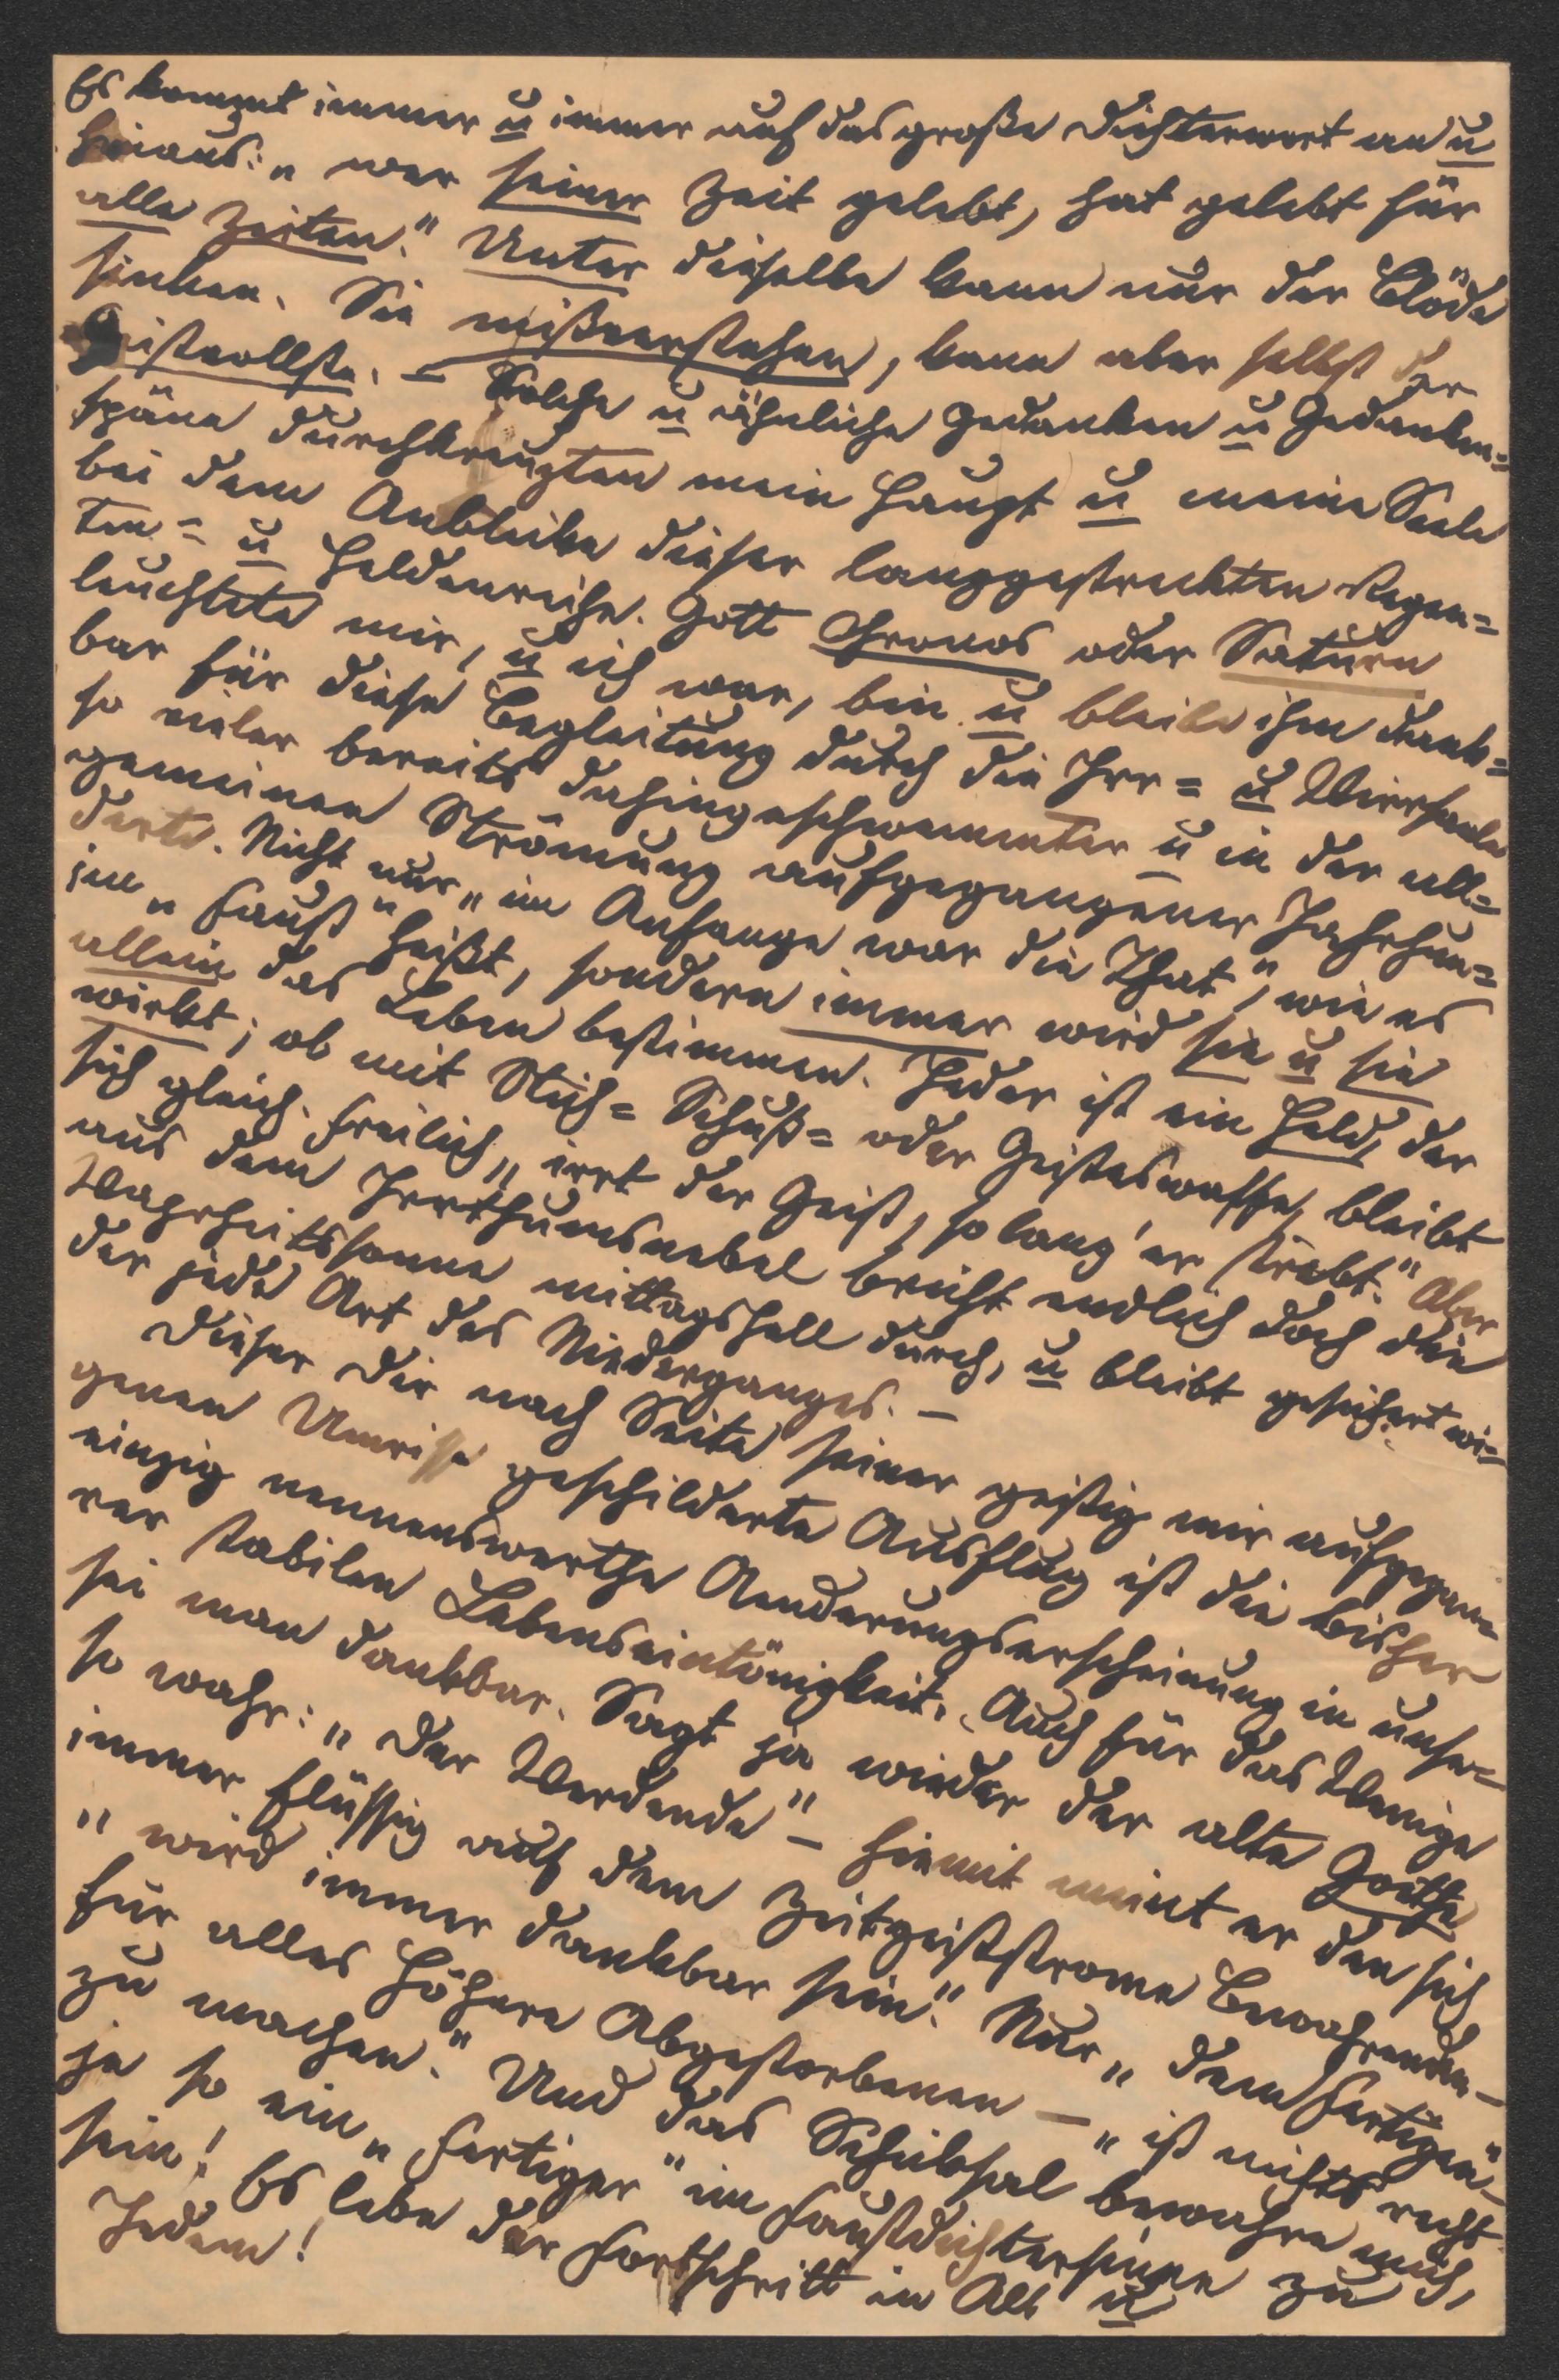 Es kommt immer u immer auf das große Dichterwort an u
hinaus: „wer seiner Zeit gelebt, hat gelebt für
alle Zeiten." Unter dieselbe kann nur der Blöde
sinken. Sie mißverstehen, kann aber selbst der
Geistvollste. – Solche u ähnliche Gedanken u Gedanken-
späne durchkreuzten mein Haupt u meine Seele
bei dem Anblicke dieser langgestreckten Regen-
ten- u Heldenreihe. Gott Chronos oder Saturn
leuchtete mir, u ich war, bin u bleibe ihm dank-
bar für diese Begleitung durch die Irr- u Wirrsale
so vieler bereits dahingeschwommener u in der all-
gemeinen Strömung aufgegangener Jahrhun-
derte. Nicht nur „im Anfange war die That", wie es
im „Faust" heißt, sondern immer wird sie u sie
allein das Leben bestimmen. Jeder ist ein Held, der
wirkt; ob mit Stich- Schuß- oder Geisteswaffe, bleibt
sich gleich. Freilich „irrt der Geist, so lang' er strebt." Aber
aus dem Irrthumsnebel bricht endlich doch die
Wahrheitssonne mittagshell durch, u bleibt gesichert wi-
der jede Art des Niederganges. –
Dieser Dir nach Seite seiner geistig mir aufgegan-
genen Umrisse geschilderte Ausflug ist die bisher
einzig nennenswerthe Aenderungserscheinung in unse-
rer stabilen Lebenseintönigkeit. Auch für das Wenige
sei man dankbar. Sagt ja wieder der alte Goethe
so wahr: „Der Werdende" – hiemit meint er den sich
immer flüssig auf dem Zeitgeiststrome Bewahrenden –
„wird immer dankbar sein." Nur „dem Fertigen" –
für alles Höhere Abgestorbenen – „ist nichts recht
zu machen." Und das Schicksal bewahre mich,
je so ein „Fertiger" im Faustdichtersinne zu
sein! Es lebe der Fortschritt in All u
Jedem!